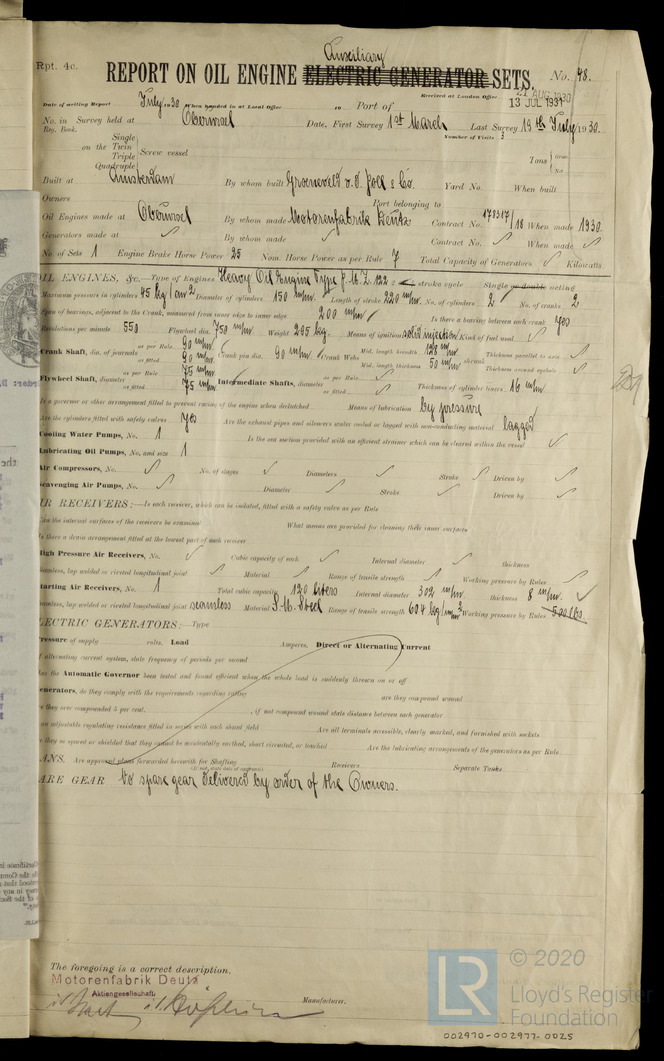 Rpt. 4c.
Auxiliary
REPORT ON OIL ENGINE ELECTRIC GENERATOR SETS. No. 48.
Received at London Office 22 AUG 1930
13 JUL 1931
Date of writing Report July 30 When handed in at Local Office Port of
No. in Survey held at Oberursel Date, First Survey 1st March Last Survey 19th July 1930.
Reg. Book. Number of Visits
Single
on the Twin
Triple
Quadruple
Screw vessel
Tons
Gross
Net
Built at Amsterdam By whom built Groeneveld v.d. Poll & Co. Yard No. When built
Owners Port belonging to
Oil Engines made at Oberursel By whom made Motorenfabrik Deutz Contract No. 178317/18 When made 1930.
Generators made at By whom made Contract No. When made
No. of Sets 1 Engine Brake Horse Power 25 Nom. Horse Power as per Rule 7 Total Capacity of Generators Kilowatts.
OIL ENGINES, &c.—Type of Engines Heavy Oil Engine Type 122 stroke cycle Single or double acting
Maximum pressure in cylinders 45 kg/cm2 Diameter of cylinders 150 m/m. Length of stroke 220 m/m. No. of cylinders 2 No. of cranks 2
Span of bearings, adjacent to the Crank, measured from inner edge to inner edge 200 m/m Is there a bearing between each crank yes
Revolutions per minute 550 Flywheel dia. 750 m/m. Weight 295 kg. Means of ignition solid injection Kind of fuel used
Crank Shaft, dia. of journals as per Rule 90 m/m as fitted 90 m/m Crank pin dia. 90 m/m Crank Webs Mid. length breadth 120 m/m Mid. length thickness 50 m/m shrunk Thickness parallel to axis Thickness around eyehole
Flywheel Shaft, diameter as per Rule 75 m/m as fitted 75 m/m Intermediate Shafts, diameter as per Rule as fitted Thickness of cylinder liners 16 m/m
Is a governor or other arrangement fitted to prevent racing of the engine when declutched Means of lubrication by pressure
Are the cylinders fitted with safety valves yes Are the exhaust pipes and silencers water cooled or lagged with non-conducting material lagged
Cooling Water Pumps, No. 1 Is the sea suction provided with an efficient strainer which can be cleared within the vessel
Lubricating Oil Pumps, No. and size 1
Air Compressors, No. No. of stages Diameters Stroke Driven by
Scavenging Air Pumps, No. Diameter Stroke Driven by
AIR RECEIVERS:—Is each receiver, which can be isolated, fitted with a safety valve as per Rule
Can the internal surfaces of the receivers be examined What means are provided for cleaning their inner surfaces
Is there a drain arrangement fitted at the lowest part of each receiver
High Pressure Air Receivers, No. Cubic capacity of each Internal diameter thickness
Seamless, lap welded or riveted longitudinal joint Material Range of tensile strength Working pressure by Rules
Starting Air Receivers, No. 1 Total cubic capacity 120 liters Internal diameter 302 m/m. thickness 8 m/m.
Seamless, lap welded or riveted longitudinal joint seamless Material S.M. Steel Range of tensile strength 60.4 kg/mm2 Working pressure by Rules 500 lbs.
ELECTRIC GENERATORS:—Type
Pressure of supply volts. Load Amperes. Direct or Alternating Current
If alternating current system, state frequency of periods per second
Has the Automatic Governor been tested and found efficient when the whole load is suddenly thrown on or off
Generators, do they comply with the requirements regarding rating are they compound wound
are they over compounded 5 per cent. , if not compound wound state distance between each generator
Is an adjustable regulating resistance fitted in series with each shunt field Are all terminals accessible, clearly marked, and furnished with sockets
Are they so spaced or shielded that they cannot be accidentally earthed, short circuited, or touched Are the lubricating arrangements of the generators as per Rule
PLANS. Are approved plans forwarded herewith for Shafting Receivers Separate Tanks
SPARE GEAR No spare gear delivered by order of the Owners.
The foregoing is a correct description,
Motorenfabrik Deutz
Aktiengesellschaft,
Manufacturer.
LR
© 2020
Lloyd's Register
Foundation
002970-002977-0025